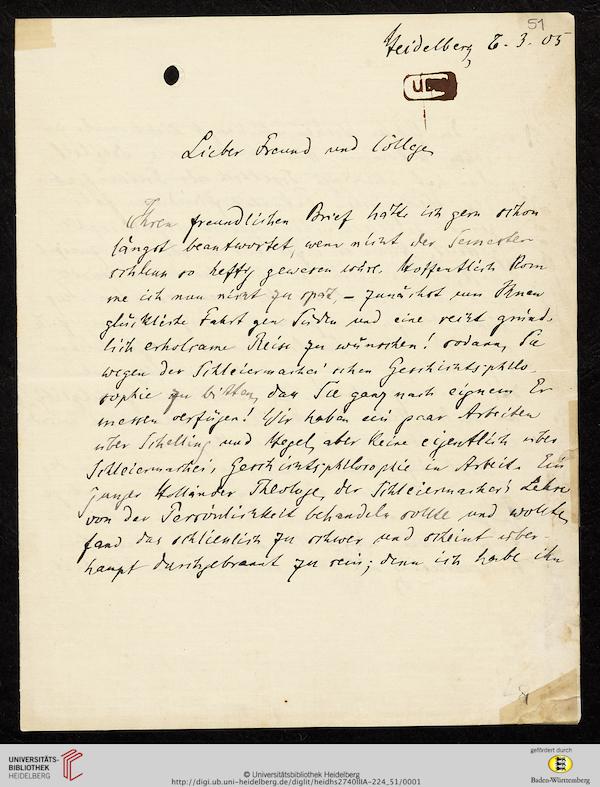 51
Heidelberg 8. 3. 05
Lieber Freund und College
Ihren freundlichen Brief hätte ich gern schon
längst beantwortet, wenn nicht der Semester
schluss so heftig gewesen wäre. Hoffentlich kom
me ich nun nicht zu spät, – zunächst um Ihnen
glückliche Fahrt gen Süden und eine recht gründ-
lich erholsame Reise zu wünschen! sodann, Sie
wegen der Schleiermacher'schen Geschichtsphilo-
sophie zu bitten, dass Sie ganz nach eignem Er
messen verfügen! Wir haben ein paar Arbeiten
über Schelling und Hegel, aber keine eigentlich über
Schleiermacher's Geschichtsphilosophie in Arbeit. Ein
junger Holländer Theologe, der Schleiermacher's Lehre
von der Persönlichkeit behandeln sollte und wollte,
fand das schliesslich zu schwer und scheint über-
haupt durchgebrannt zu sein; denn ich habe ihn
UNIVERSITÄTS-
BIBLIOTHEK
HEIDELBERG
© Universitätsbibliothek Heidelberg
http://digi.ub.uni-heidelberg.de/diglit/heidhs2740IIIA-224_51/0001
gefördert durch
Baden-Württemberg